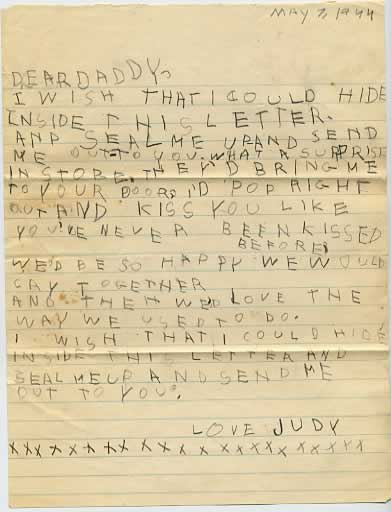 MAY 7, 1944
DEAR DADDY,
I WISH THAT I COULD HIDE
INSIDE THIS LETTER.
AND SEAL ME UP AND SEND
ME OUT TO YOU. WHAT A SURPRISE
IN STORE. THEY'D BRING ME
TO YOUR DOORS, I'D POP RIGHT
OUT AND KISS YOU LIKE
YOU'VE NEVER BEEN KISSED
BEFORE,
WE'D BE SO HAPPY WE WOULD
CRY TOGETHER
AND THEN WE'D LOVE THE
WAY WE USED TO DO.
I WISH THAT I COULD HIDE
INSIDE THIS LETTER AND
SEAL ME UP AND SEND ME
OUT TO YOU.
LOVE JUDY
XXXXXXXXXXXXXXXXXXXXXXX